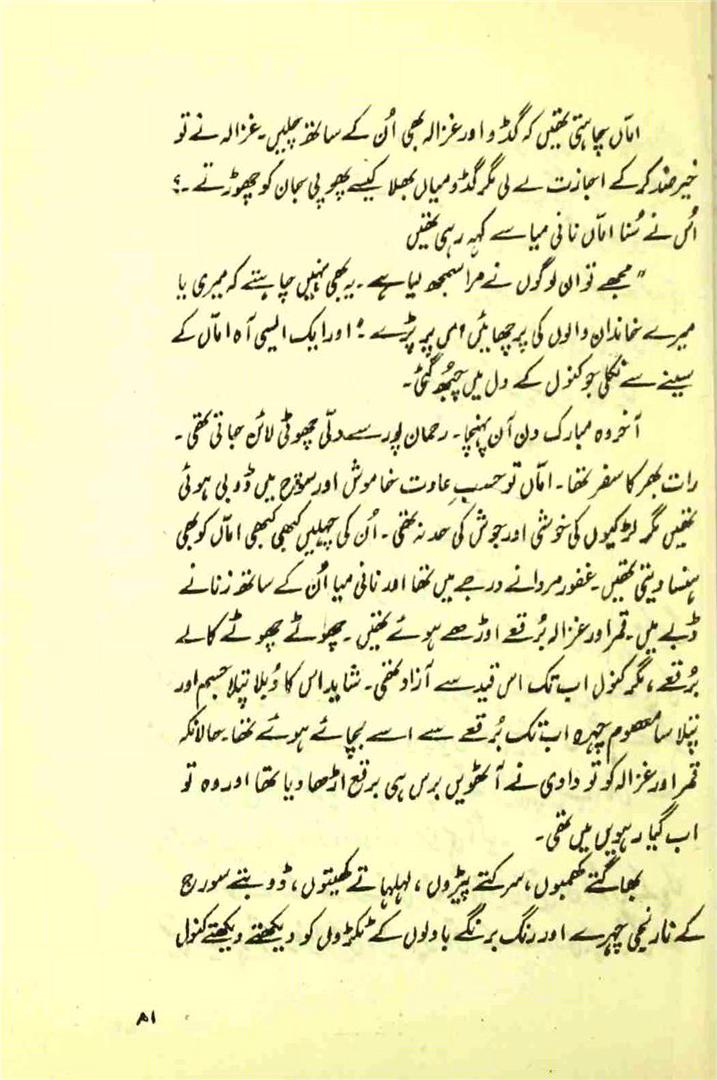 اماں چاہتی تھیں کہ گڈو اور غزالہ بھی اُن کے ساتھ چلیں۔ غزالہ نے تو
خیر ضد کر کے اجازت لے لی مگر گڈو میاں بھلا کیسے پھوپی جان کو چھوڑتے۔؟
اُس نے سُنا اماں نانی میا سے کہہ رہی تھیں
"مجھے تو ان لوگوں نے مرا سمجھ لیا ہے۔ یہ بھی نہیں چاہتے کہ میری یا
میرے خاندان والوں کی پرچھائیں اس پر پڑے۔" اور ایک ایسی آہ اماں کے
سینے سے نکلی جو کنول کے دل میں چُبھ گئی۔
آخر وہ مبارک دن آن پہنچا۔ رحمان پور سے دلّی چھوٹی لائن جاتی تھی۔
رات بھر کا سفر تھا۔ اماں تو حسبِ عادت خاموش اور سوچ میں ڈوبی ہوئی
تھیں مگر لڑکیوں کی خوشی اور جوش کی حد نہ تھی۔ اُن کی چہلیں کبھی کبھی اماں کو بھی
ہنسا دیتی تھیں۔ غفور مردانے درجے میں تھا اور نانی میا اُن کے ساتھ زنانے
ڈبے میں۔ قمر اور غزالہ بُرقعے اوڑھے ہوئے تھیں۔ چھوٹے چھوٹے کالے
بُرقعے، مگر کنول اب تک اس قید سے آزاد تھی۔ شاید اس کا دُبلا پتلا جسم اور
پتلا سا معصوم چہرہ اب تک بُرقعے سے اسے بچائے ہوئے تھا۔ حالانکہ
قمر اور غزالہ کو تو دادی نے آٹھویں برس ہی برقع اڑھا دیا تھا اور وہ تو
اب گیارہویں میں تھی۔
بھاگتے کھمبوں، سرکتے پیڑوں، لہلہاتے کھیتوں، ڈوبتے سورج
کے نارنجی چہرے اور رنگ برنگے بادلوں کے ٹکڑوں کو دیکھتے دیکھتے کنول
۸۱